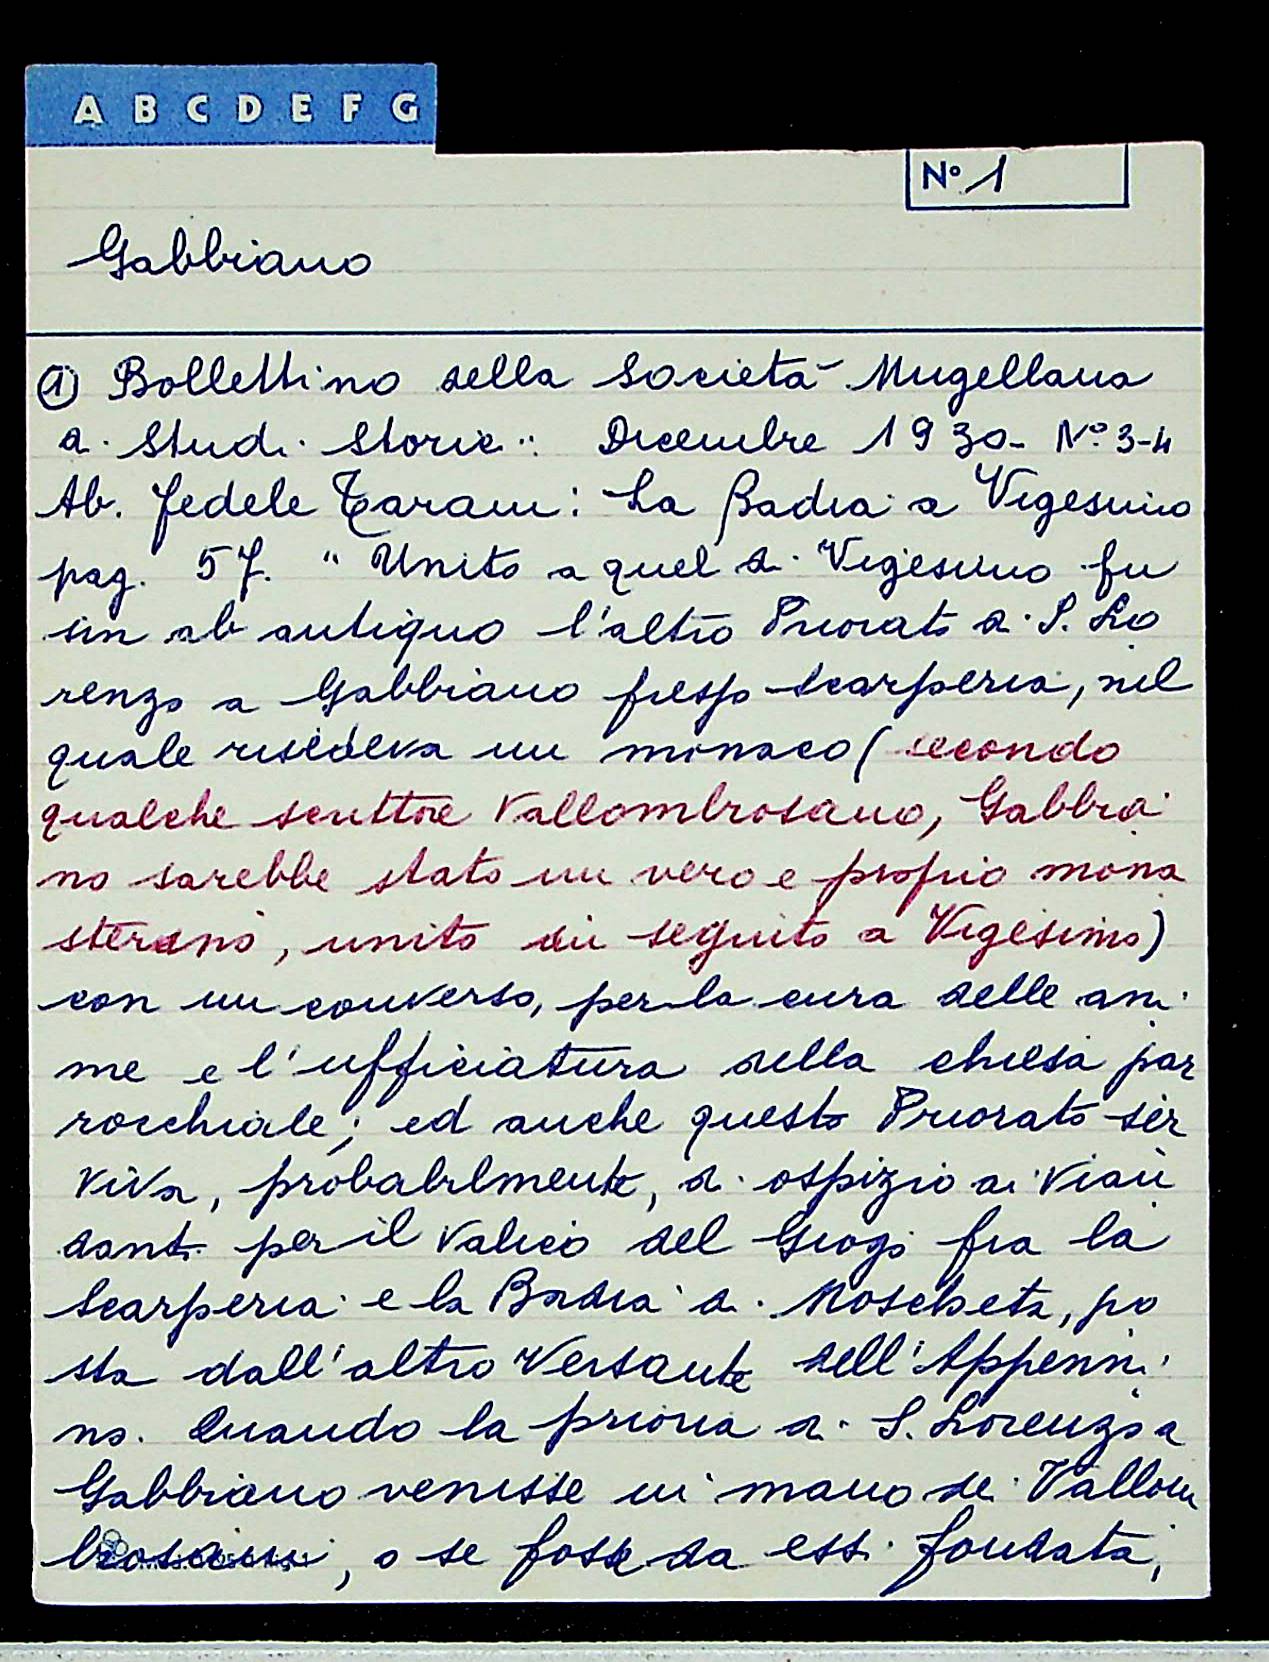 A B C D E F G
N° 1
Gabbiano
① Bollettino della Società Mugellana
di Studi Storici: Dicembre 1930- N° 3-4
Ab. Fedele Tarani: La Badia a Vigesimo
pag. 57. " Unito a quel di Vigesimo fu
sin ab antiquo l'altro Priorato di S. Lo
renzo a Gabbiano presso Scarperia, nel
quale risiedeva un monaco (secondo
qualche scrittore Vallombrosano, Gabbia
no sarebbe stato un vero e proprio mona
stero, unito in seguito a Vigesimo)
con un converso, per la cura delle ani
me e l'ufficiatura della chiesa par
rocchiale; ed anche questo Priorato ser
viva, probabilmente, di ospizio ai vian
danti per il valico del Giogo fra la
Scarperia e la Badia di Moscheta, po
sta dall'altro versante dell'Appenni
no. Quando la prioria di S. Lorenzo a
Gabbiano venisse in mano dei Vallom
brosani, o se fosse da essi fondata,